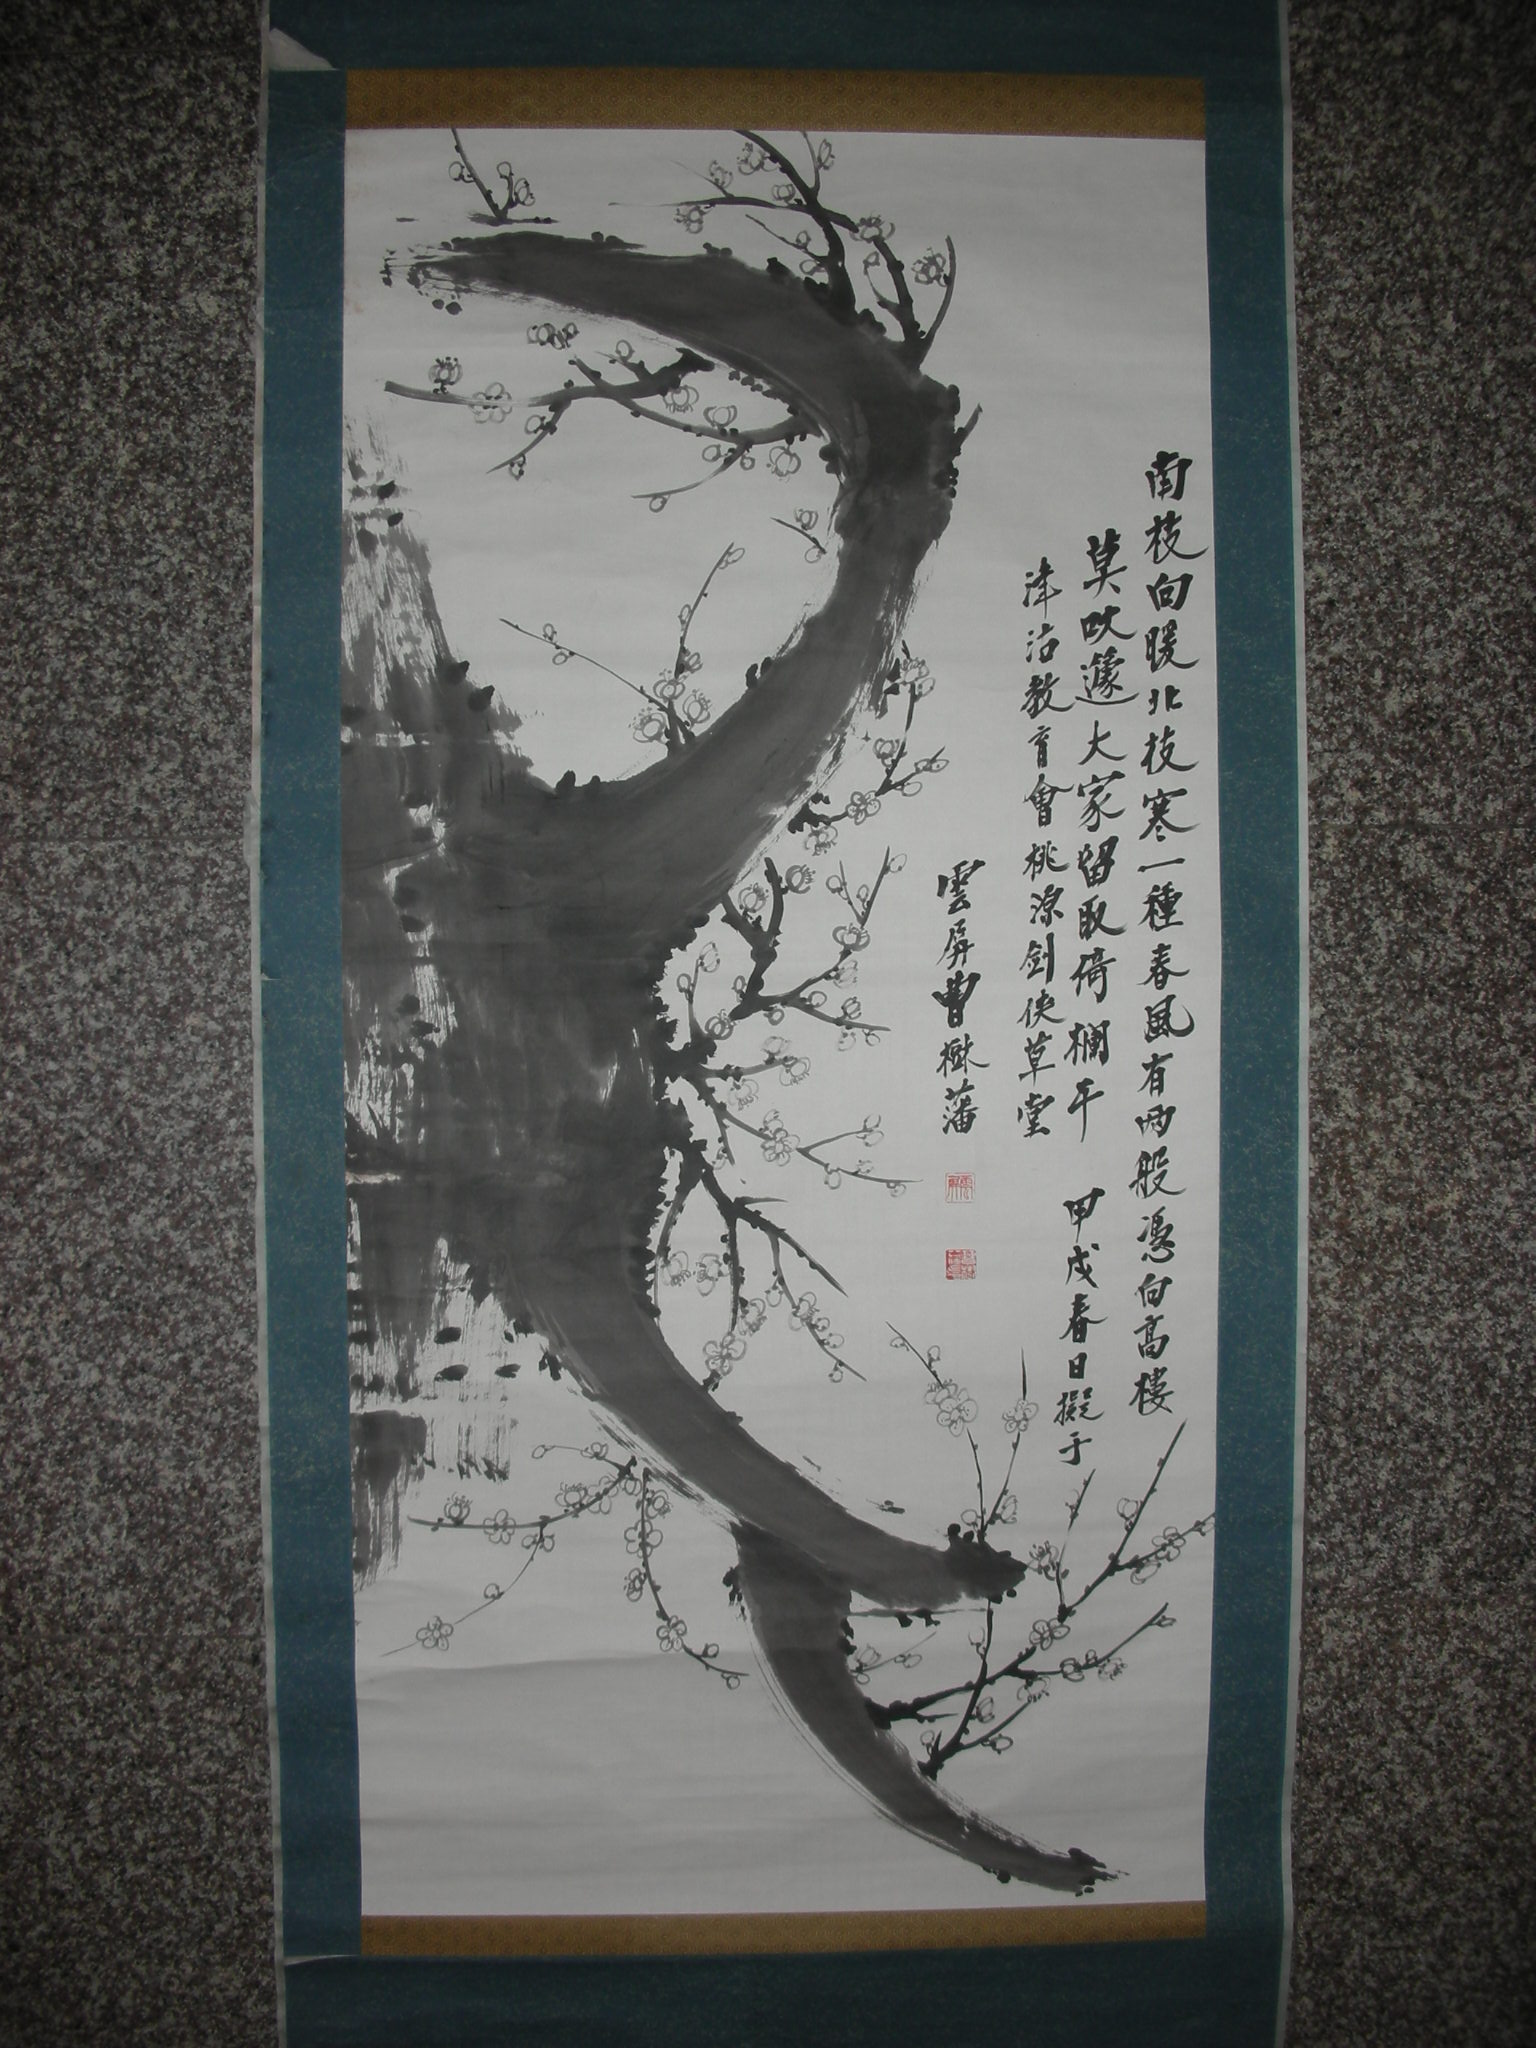 南枝向暖北枝寒一種春風有兩般憑向高樓
莫吹邃大家留取倚欄干 甲戌春日擬于
津沽教育會桃源劍俠草堂
雲屏曹樾藩